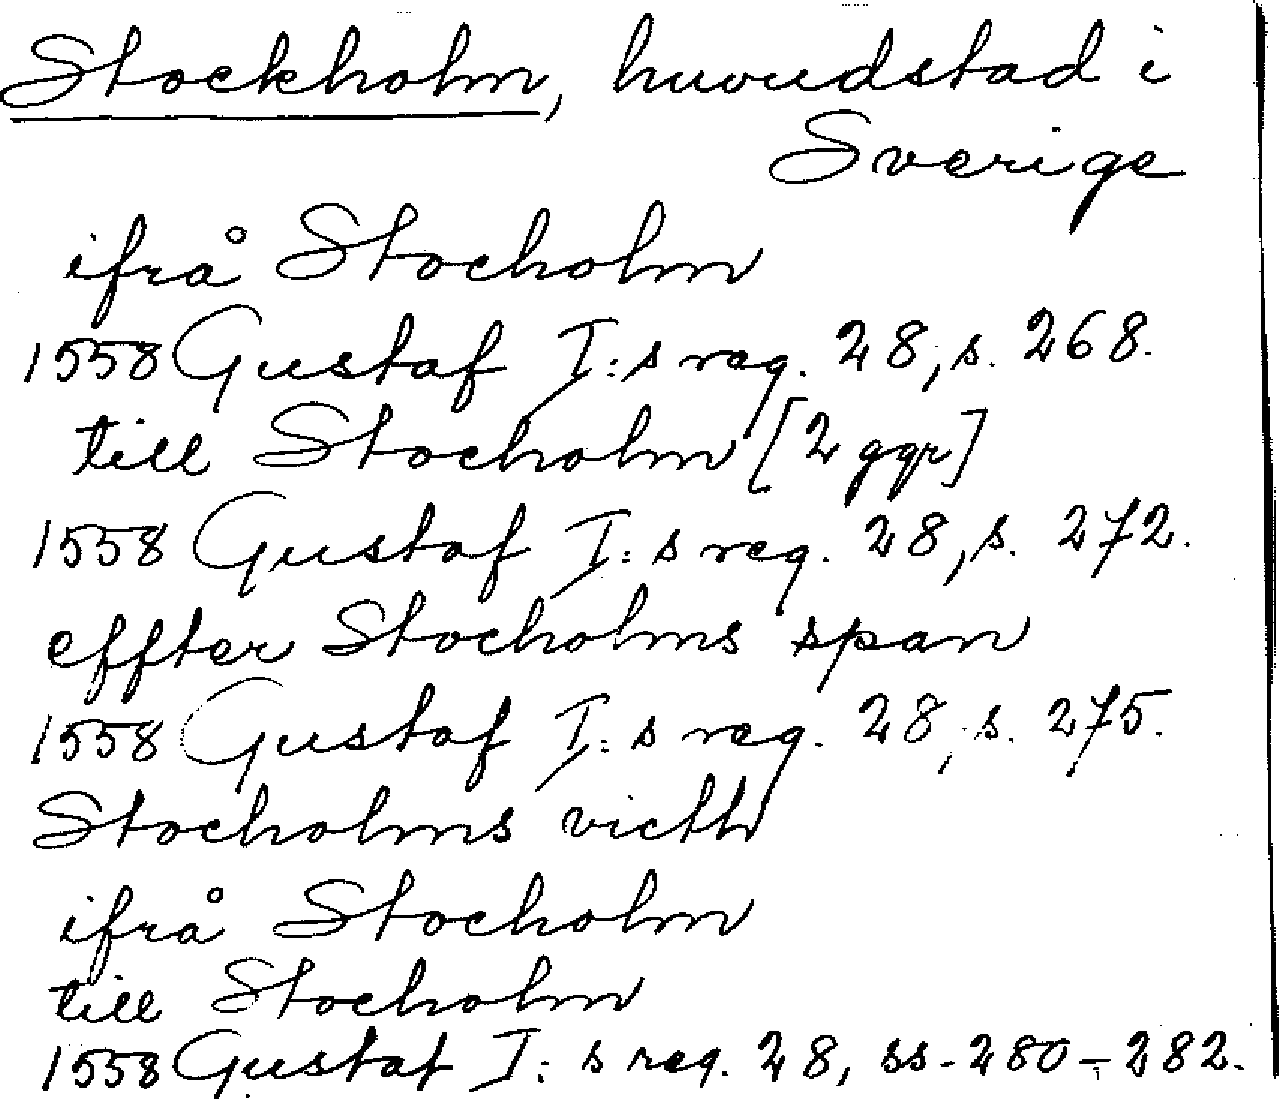 Stockholm, huvudstad i
Sverige
ifrå Stocholm
1558 Gustaf I:s reg. 28, s. 268.
till Stocholm [2 ggr]
1558 Gustaf I:s reg. 28, s. 272.
effter Stocholms span
1558 Gustaf I:s reg. 28, s. 275.
Stocholms victh
ifrå Stocholm
till Stocholm
1558 Gustaf I:s reg. 28, ss. 280-282.